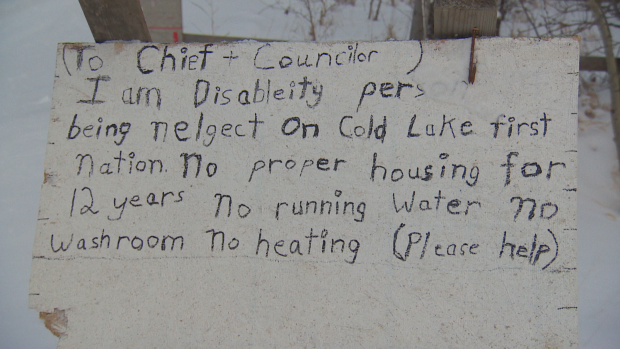 (To Chief + Councilor )
I am Disableity person
being nelgect on Cold Lake first
nation. no proper housing for
12 years no running Water no
washroom no heating (Please help)